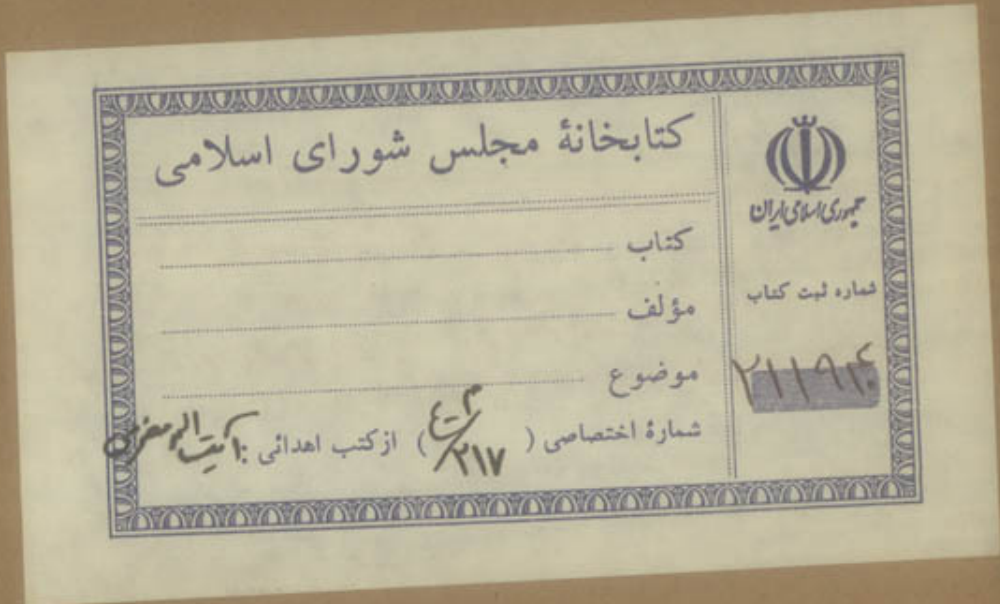 کتابخانهٔ مجلس شورای اسلامی
کتاب
مؤلف
موضوع
شمارهٔ اختصاصی ( ۲۱۷ ) از کتب اهدائی :
جمهوری اسلامی ایران
شماره ثبت کتاب